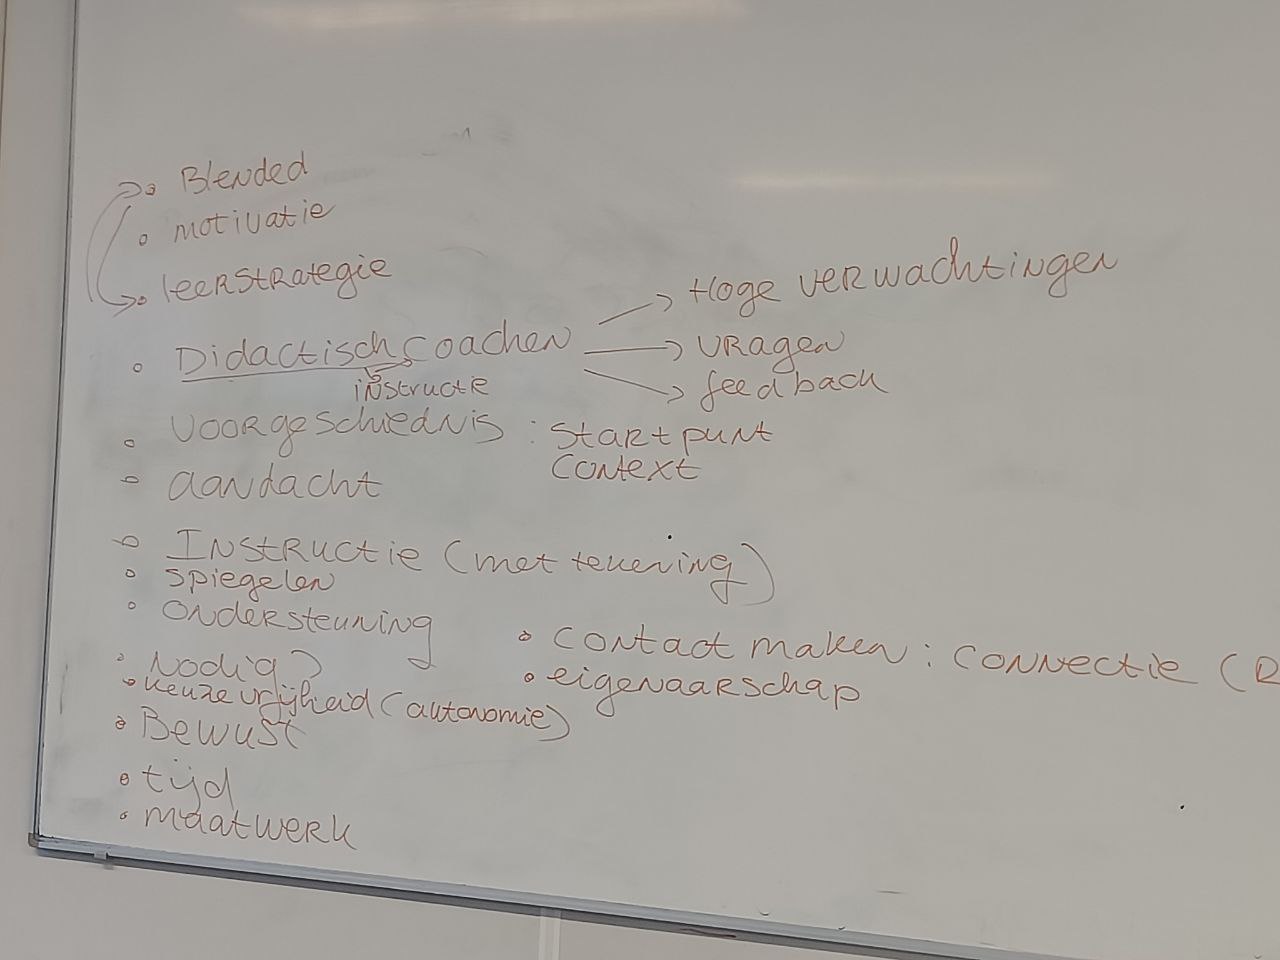 Blended
motivatie
leerstrategie
Didactisch coachen
instructie
Hoge verwachtingen
vragen
feedback
voorgeschiednis : startpunt
context
aandacht
Instructie (met tekening)
spiegelen
ondersteuning
Nodig
keuzevrijheid (autonomie)
Bewust
tijd
maatwerk
contact maken : connectie (R
eigenaarschap